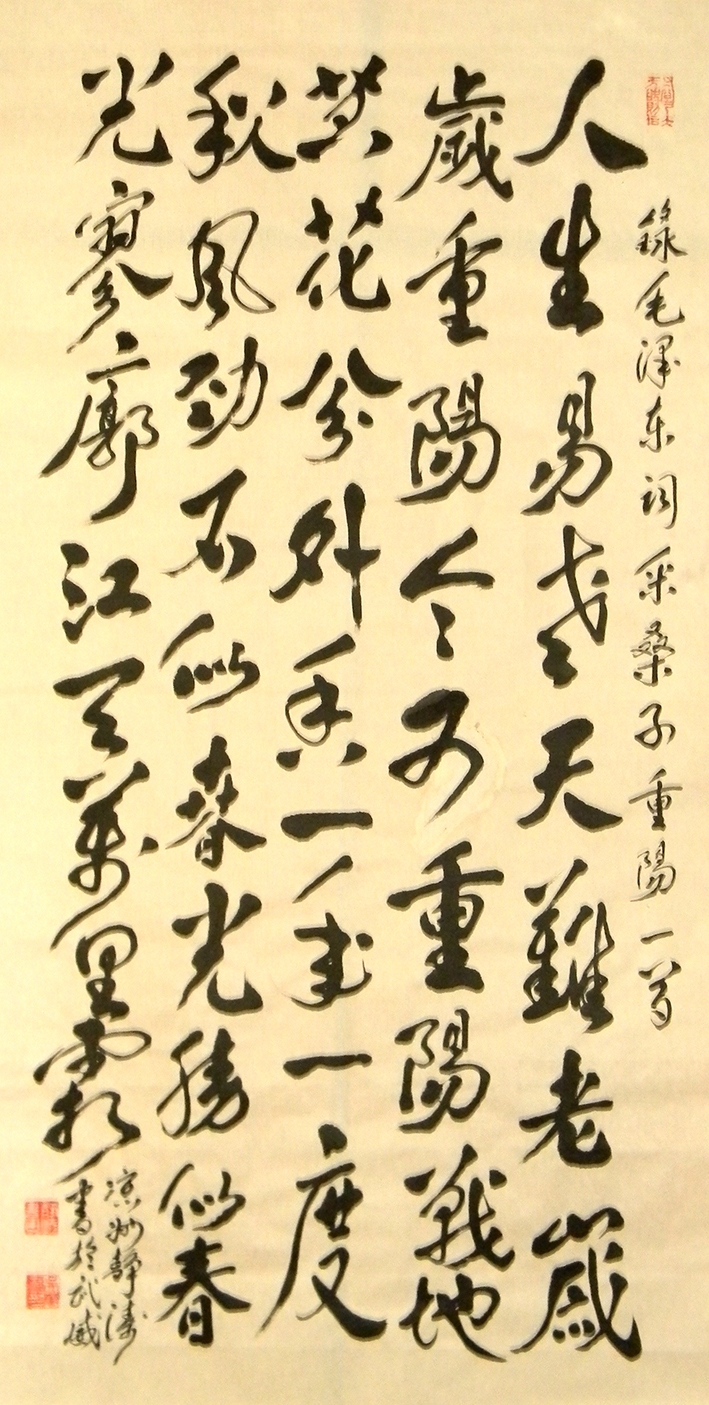 錄毛澤东词采桑子重陽一首
人生易老天難老歲
歲重陽今又重陽戰地
黄花分外香一年一度
秋風勁不似春光勝似春
光寥廓江天萬里霜
凉州静涛
書於武威